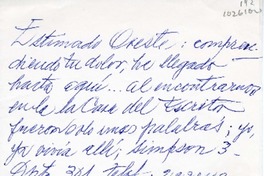 192
1026102
Estimado Oreste: compren
diendo tu dolor, he llegado
hasta aquí... al encontrarnos
en la Casa del Escritor
fueron solo unas palabras; yo,
ya vivía allí; Simpson 3-
Dpto 301